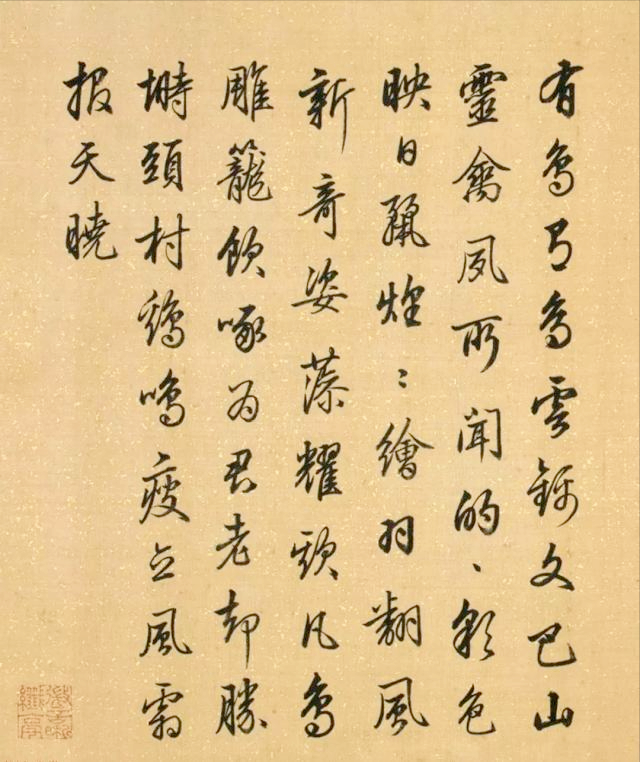 有鳥有鳥雲錦文巴山
靈禽夙所聞的〻彩色
映日麗煌〻繪羽翻風
新奇姿藻耀凡鳥
雕籠飲啄為君老却勝
塒頭村鷄鳴瘦立風霜
报天曉